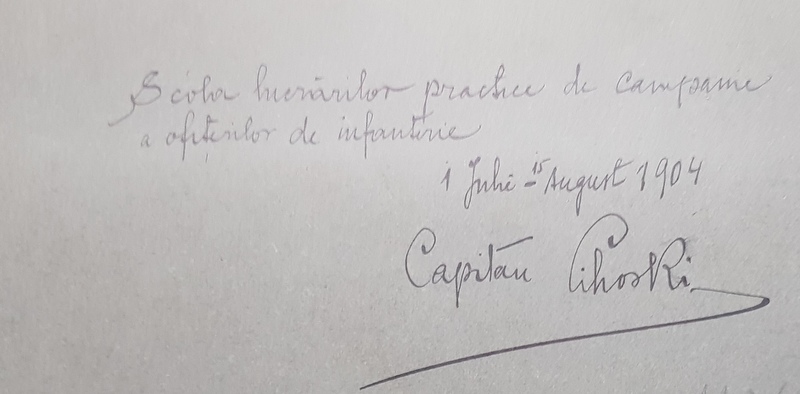 Scola lucrărilor practice de campanie
a ofițerilor de infanterie
1 Julie - 15 August 1904
Capitan Cihoski